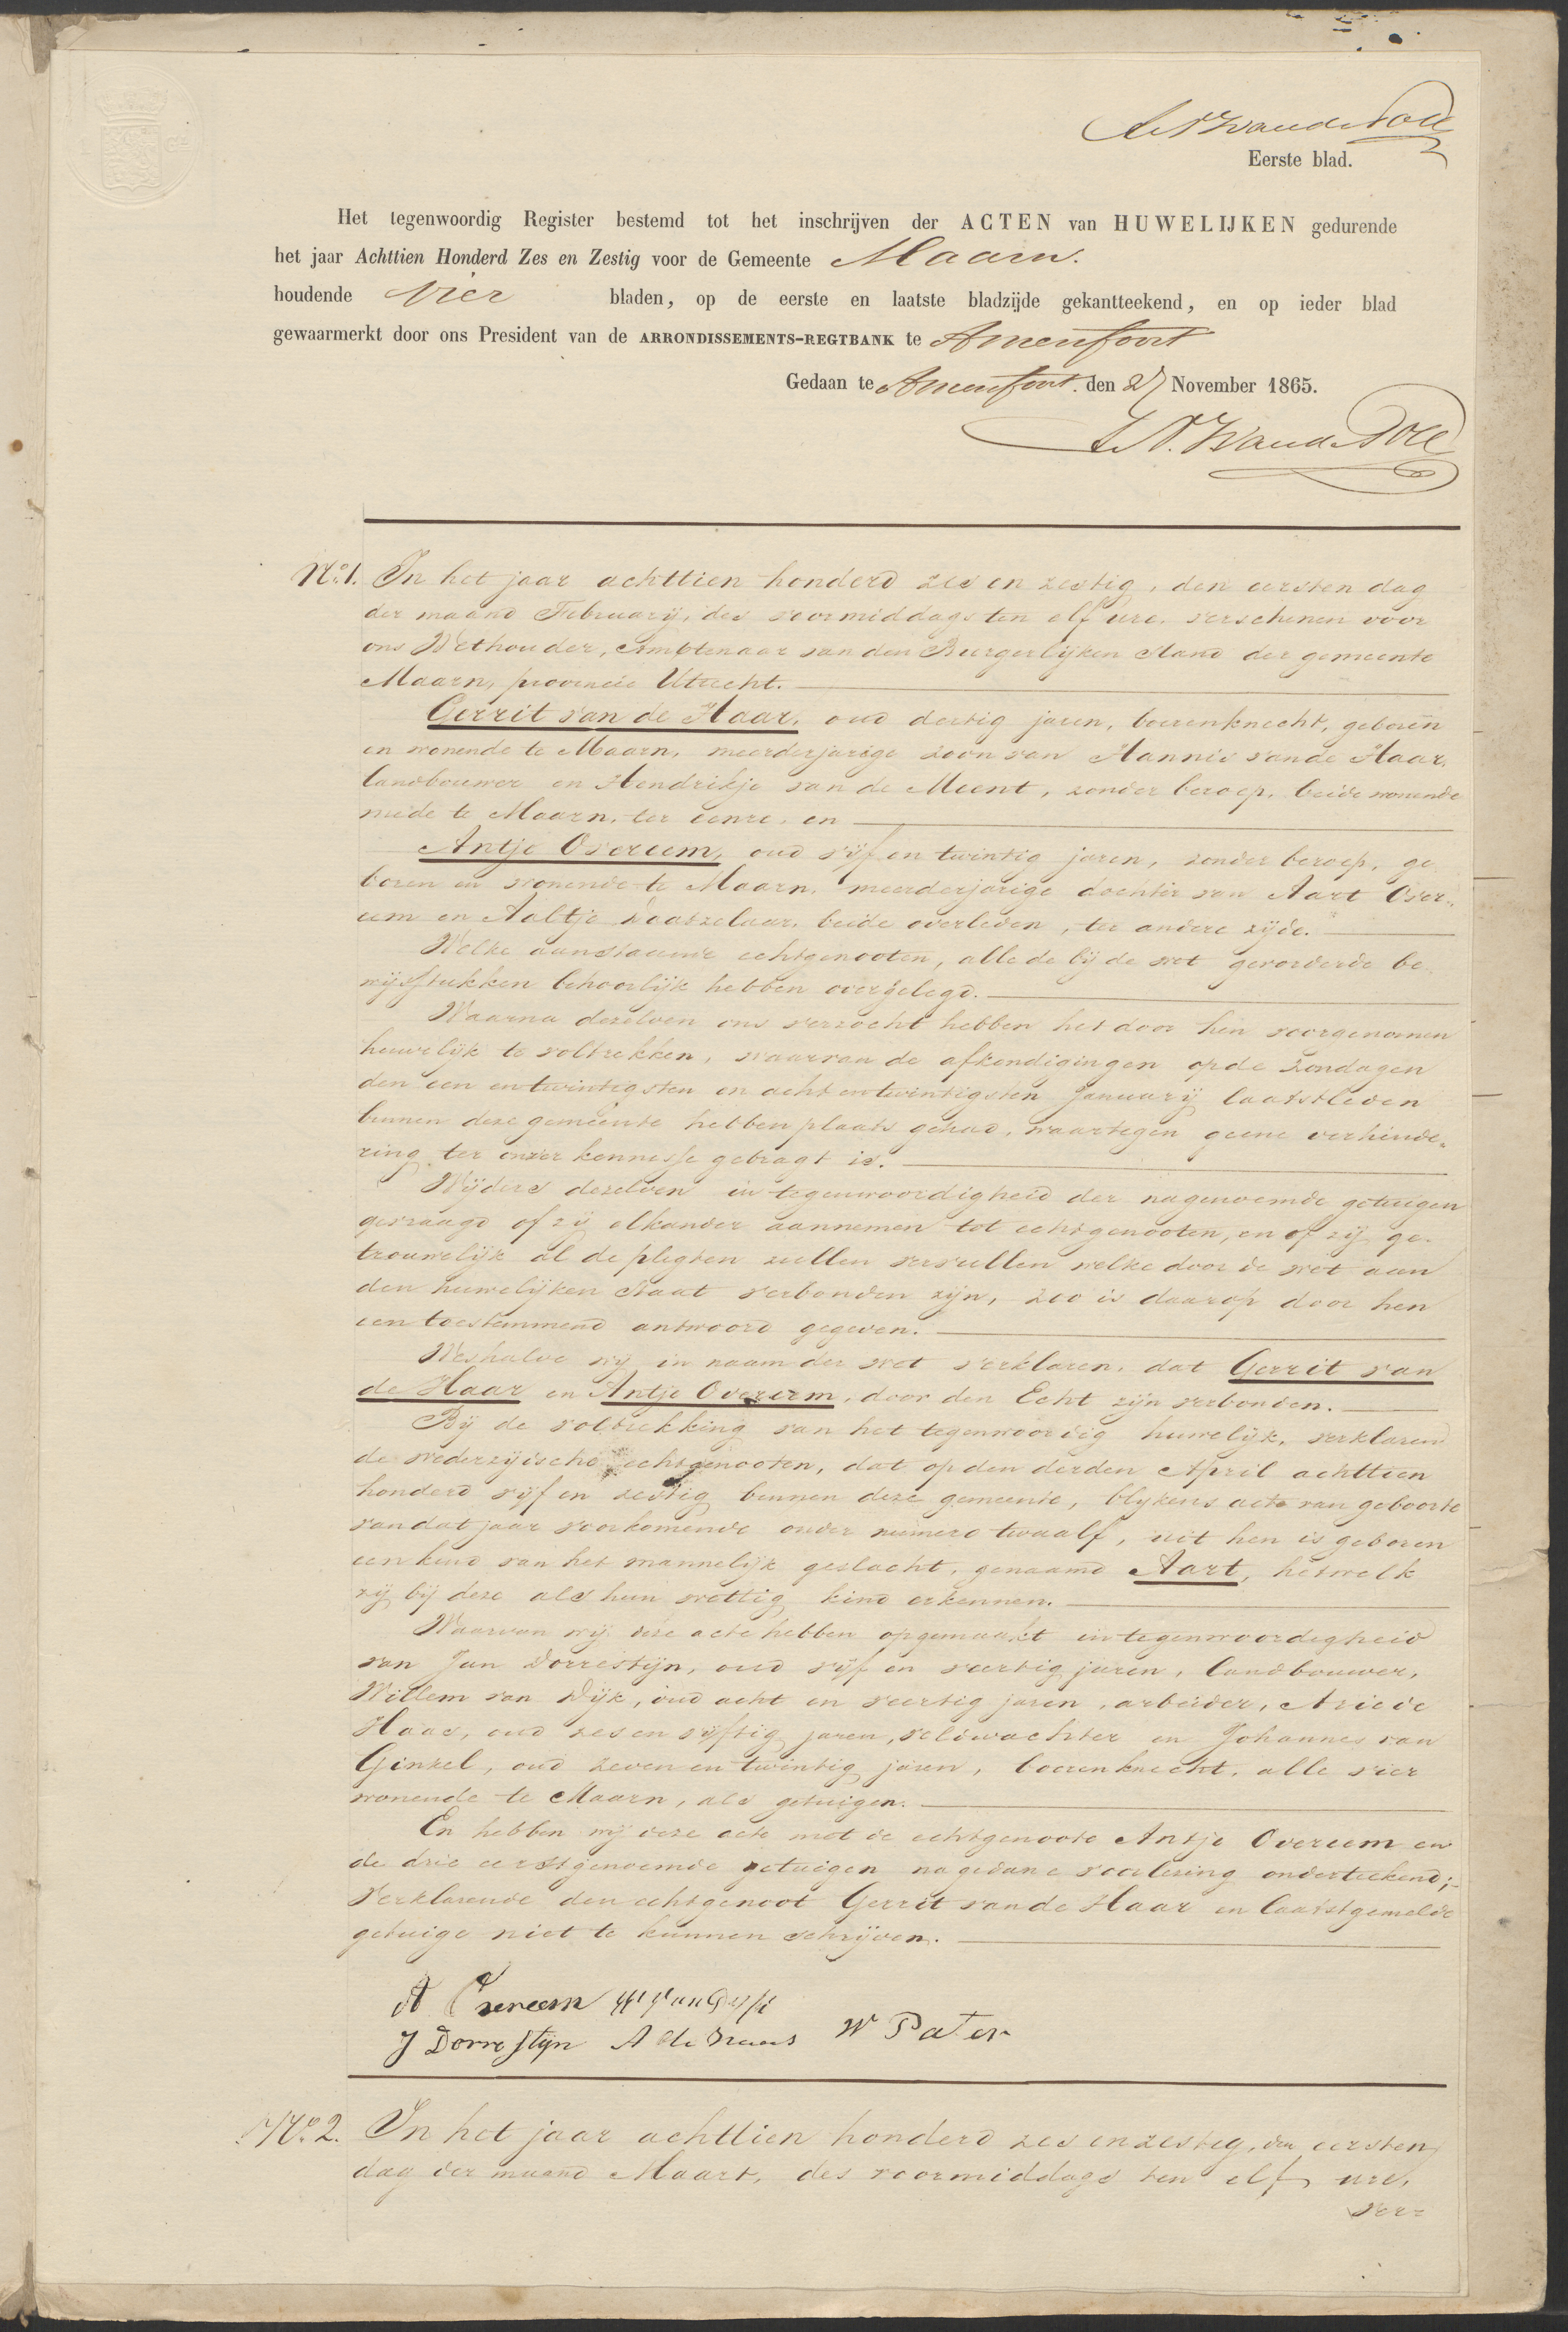 Eerste blad.
Het tegenwoordig Register bestemd tot het inschrijven der ACTEN van HUWELIJKEN gedurende
het jaar Achttien Honderd Zes en Zestig voor de Gemeente Maarn.
houdende vier bladen, op de eerste en laatste bladzijde gekantteekend, en op ieder blad
gewaarmerkt door ons President van de ARRONDISSEMENTS-REGTBANK te Amersfoort
Gedaan te Amersfoort. den 27 November 1865.
No. 1. In het jaar achttien honderd zes en zestig, den eersten dag
der maand Februarij, des voormiddags ten elf ure, verschenen voor
ons Wethouder, Ambtenaar van den Burgerlijken Stand der gemeente
Maarn, provincie Utrecht.
Gerrit van de Haar, oud dertig jaren, boerenknecht, geboren
en wonende te Maarn, meerderjarige zoon van Hannis van de Haar,
landbouwer en Hendrikje van de Meent, zonder beroep, beide wonende
mede te Maarn, ter eenre, en
Antje Overeem, oud vijf en twintig jaren, zonder beroep, ge
boren en wonende te Maarn, meerderjarige dochter van Aart Over-
eem en Aaltje Daatzelaar, beide overleden, ter andere zijde.
Welke aanstaande echtgenooten, alle de bij de wet gevorderde be
wijsstukken behoorlijk hebben overgelegd.
Waarna dezelven ons verzocht hebben het door hen voorgenomen
huwelijk te voltrekken, waarvan de afkondigingen op de Zondagen
den een en twintigsten en acht en twintigsten Januarij laatstleden
binnen deze gemeente hebben plaats gehad, waartegen geene verhinde-
ring ter onzer kennisse gebragt is.
Wijders dezelven in tegenwoordigheid der nagenoemde getuigen
gevraagd of zij elkander aannemen tot echtgenooten, en of zij ge-
trouwelijk al de pligten zullen vervullen welke door de wet aan
den huwelijken Staat verbonden zijn, zoo is daarop door hen
een toestemmend antwoord gegeven.
Weshalve wij in naam der wet verklaren, dat Gerrit van
de Haar en Antje Overeem, door den Echt zijn verbonden.
Bij de voltrekking van het tegenwoordig huwelijk, verklaren
de wederzijdsche echtgenooten, dat op den derden April achttien
honderd vijf en zestig binnen deze gemeente, blijkens acte van geboorte
van dat jaar voorkomende onder numero twaalf, uit hen is geboren
een kind van het mannelijk geslacht, genaamd Aart, hetwelk
zij bij deze als hun wettig kind erkennen.
Waarvan wij deze acte hebben opgemaakt in tegenwoordigheid
van Jan Dorrestijn, oud vijf en veertig jaren, landbouwer,
Willem van Dijk, oud acht en veertig jaren, arbeider, Arie de
Haas, oud zes en vijftig jaren, veldwachter en Johannes van
Ginkel, oud zeven en twintig jaren, boerenknecht, alle vier
wonende te Maarn, als getuigen.
En hebben wij deze acte met de echtgenoote Antje Overeem en
de drie eerstgenoemde getuigen na gedane voorlezing onderteekend;
Verklarende den echtgenoot Gerrit van de Haar en laatstgemelde
getuige niet te kunnen schrijven.
A Overeem
J Dorrestijn A de Haas W Pater
No. 2. In het jaar achttien honderd zes en zestig, den eersten
dag der maand Maart, des voormiddags ten elf ure,
ver-